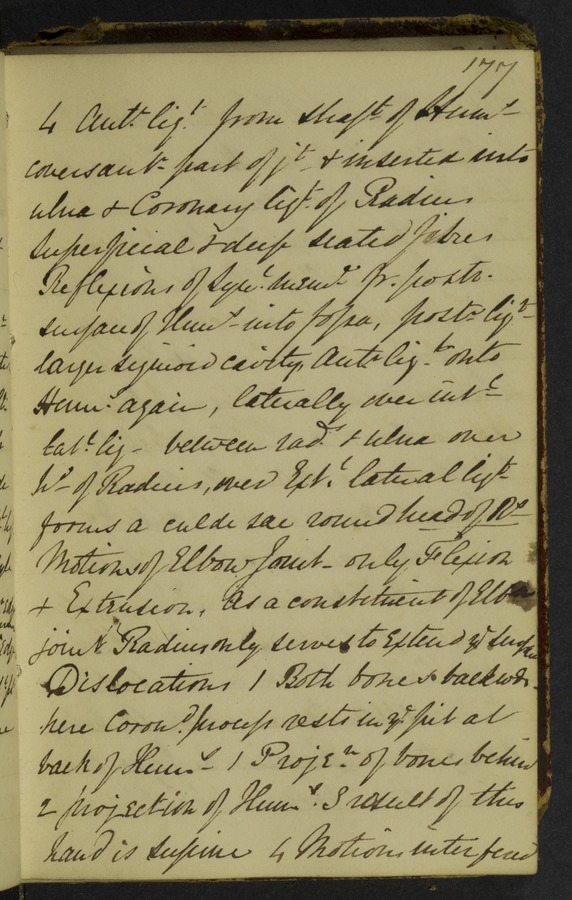 177
4 Antr. ligt. from shaft of Humr.
covers ant. part of jt. & inserted into
ulna & Coronary ligt. of Radius
Superficial & deep seated fibres
Reflexions of Synl. memb. fr. postr.
surface of Humr. into fossa, postr. ligt.
larger sigmoid cavity, Antr. ligt. onto
Humr. again, laterally over intl.
latl. lig - between rad. & ulna over
hd. of Radius, over Extl. lateral ligt.
forms a cul de sac round head of Rs
Motions of Elbow Joint - only Flexion
& Extension, As a constituent of Elbow
joint Radius only serves to Extend yt. surface
Dislocations 1 Both bones backwds.
here Corond. process rests in yt. pit at
back of Humrs. 1 Projen. of bones behind
2 projection of Humr. 3 result of this
hand is supine 4 Motions interfered